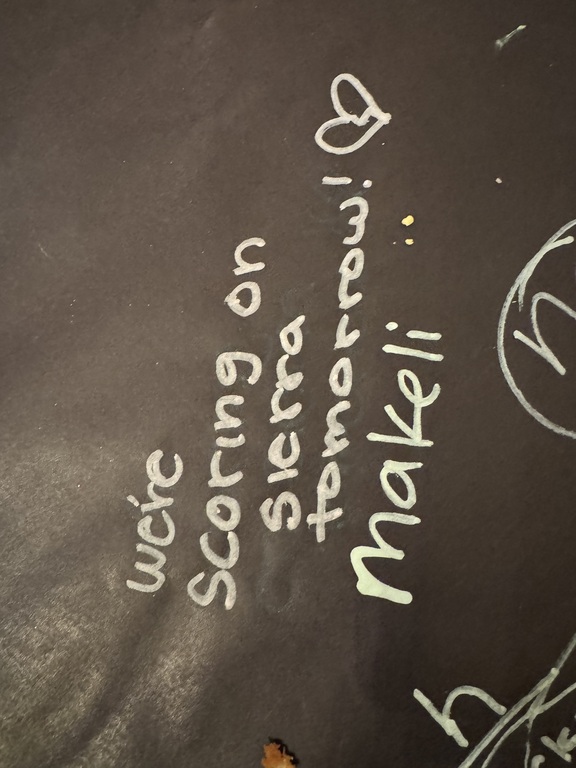 we're
scoring on
sierra
tomorrow! ♡
Makeli
h
h